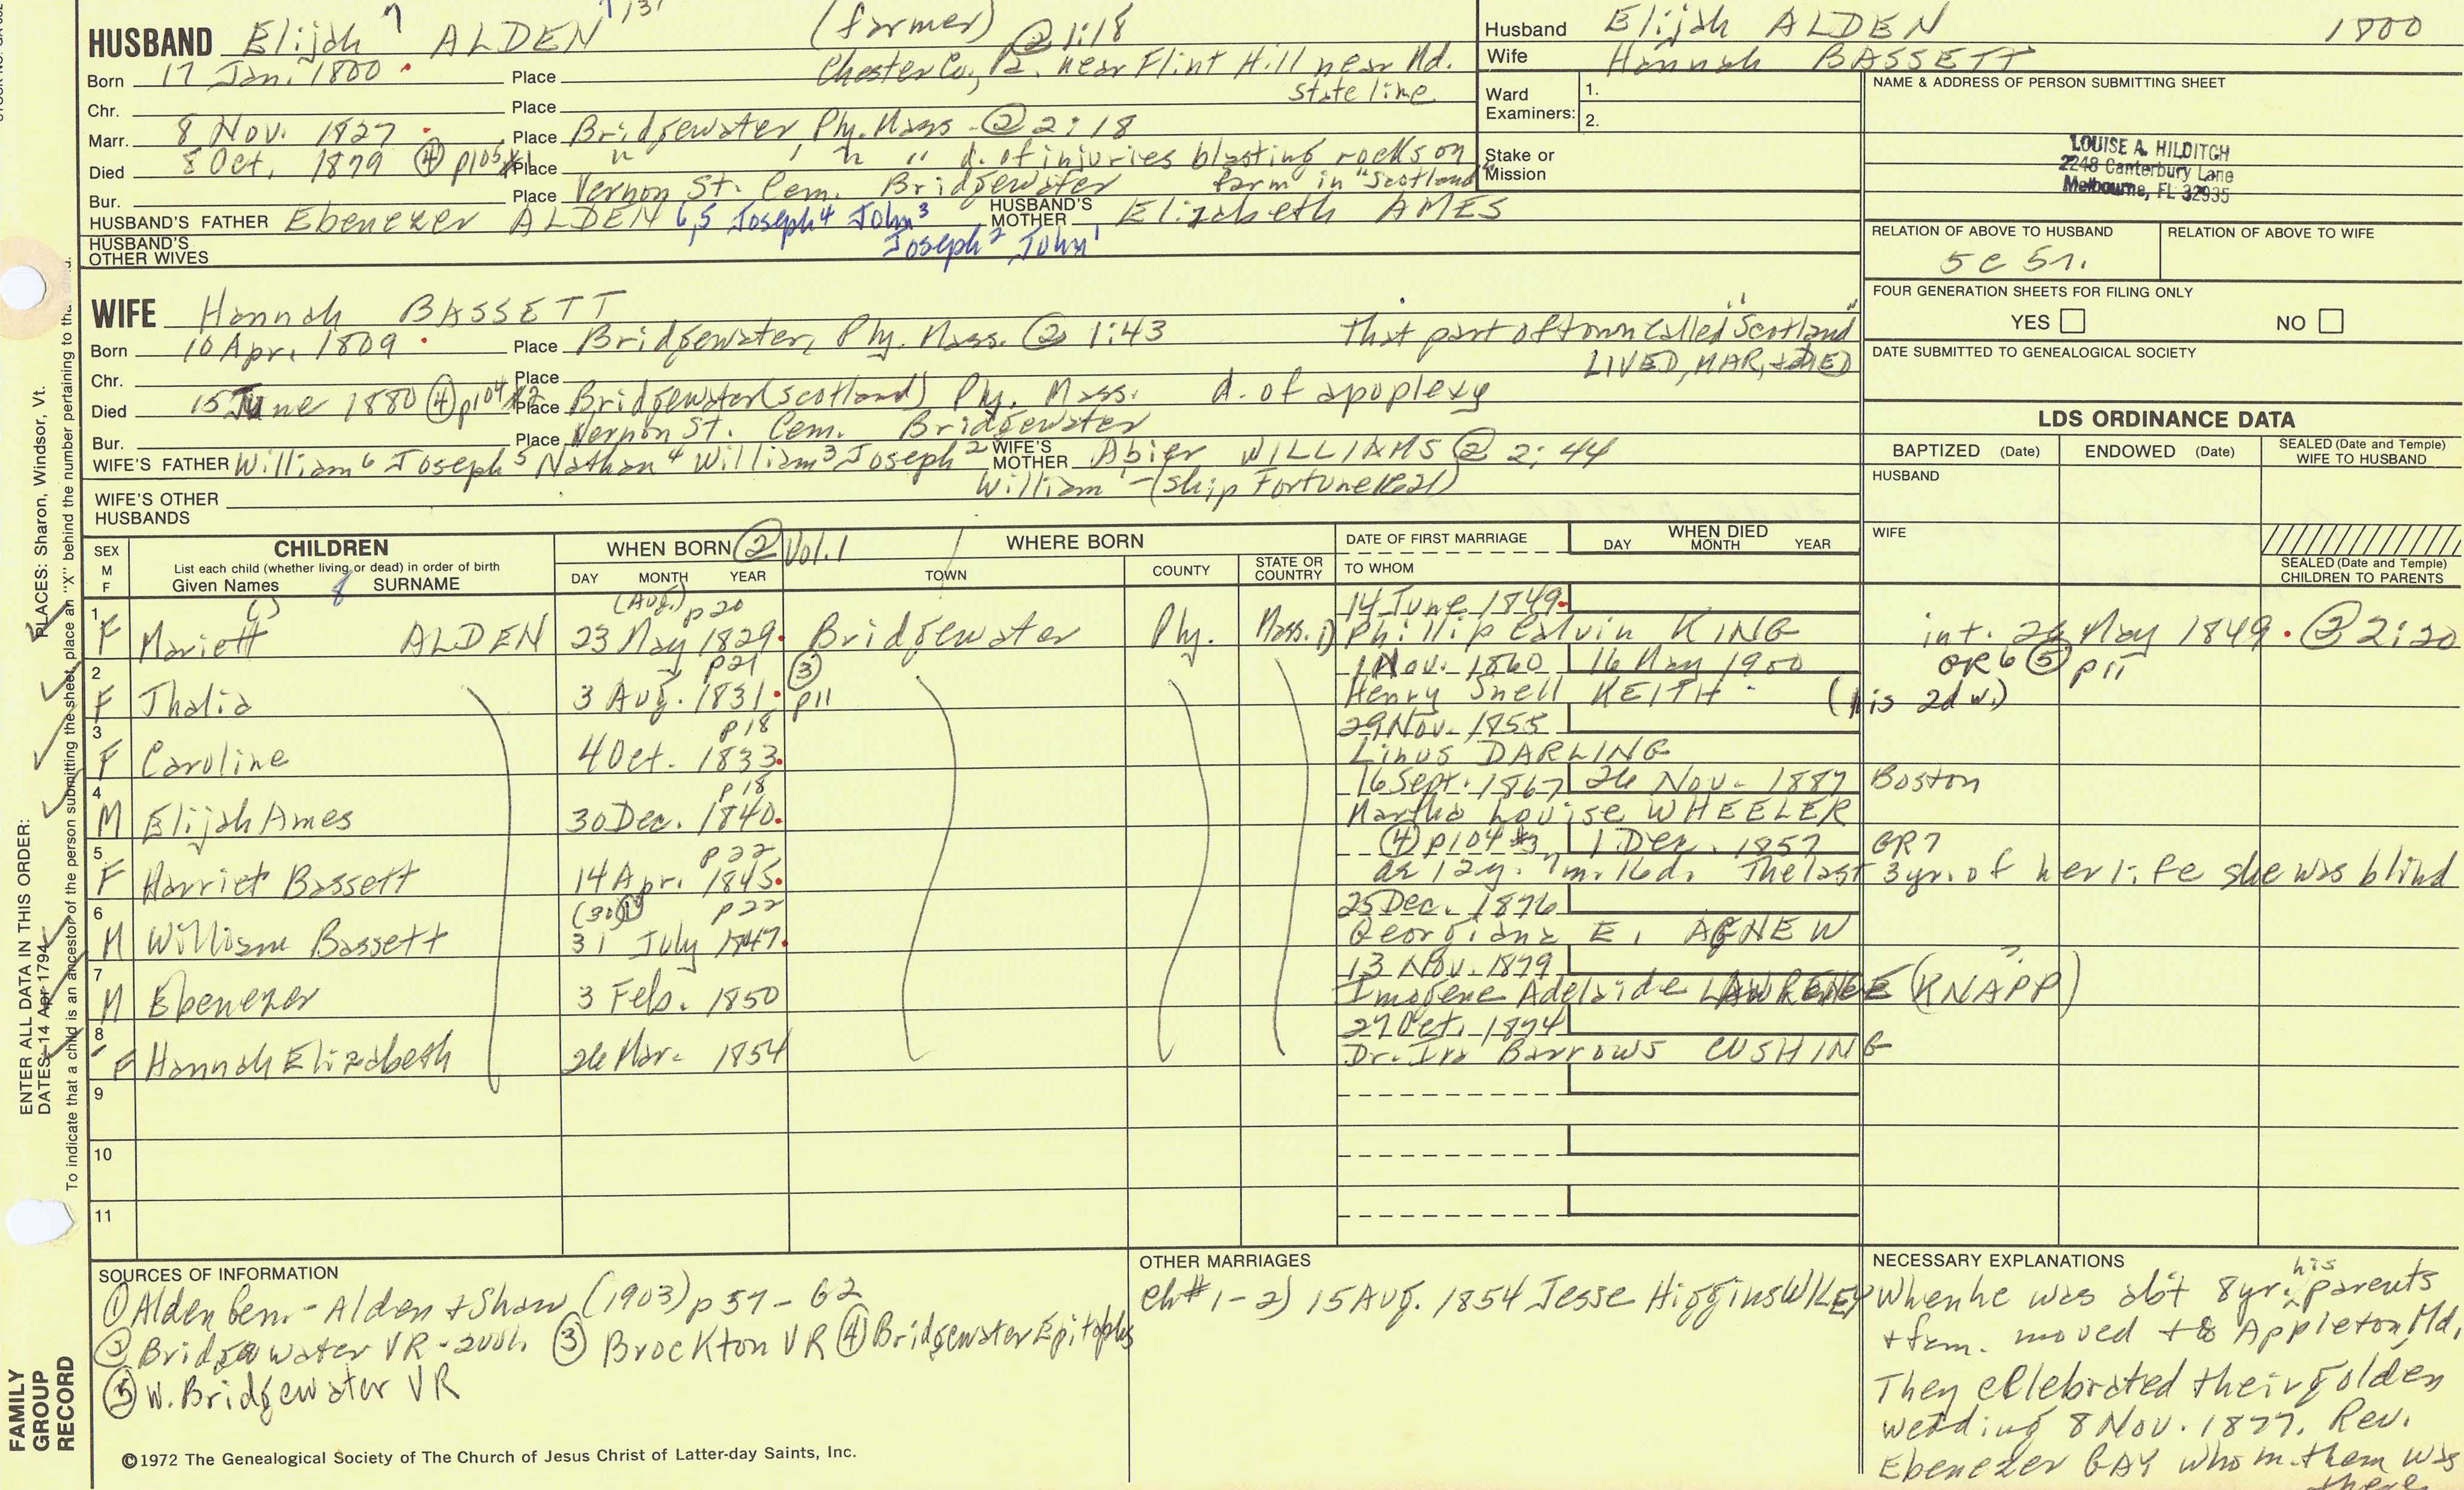 HUSBAND Elijah 7 ALDEN (farmer) @ 1:18
Born 17 Jan. 1800 Place Chester Co., Pa. near Flint Hill near Md.
state line
Chr. Place
Marr. 8 Nov. 1827 Place Bridgewater, Ply. Mass. @ 2:18
Died 8 Oct. 1879 ④ p105 Place " " " d. of injuries blasting rocks on
farm in "Scotland"
Bur. Place Vernon St. Cem. Bridgewater
HUSBAND'S FATHER Ebenezer ALDEN 6,5 Joseph4 John3 HUSBAND'S MOTHER Elizabeth AMES
Joseph2 John1
HUSBAND'S OTHER WIVES
Husband Elijah ALDEN 1800
Wife Hannah BASSETT
Ward Examiners: 1.
2.
Stake or Mission
NAME & ADDRESS OF PERSON SUBMITTING SHEET
LOUISE A. HILDITCH
2248 Canterbury Lane
Melbourne, FL 32935
RELATION OF ABOVE TO HUSBAND RELATION OF ABOVE TO WIFE
5c 5r.
FOUR GENERATION SHEETS FOR FILING ONLY
YES NO
DATE SUBMITTED TO GENEALOGICAL SOCIETY
WIFE Hannah BASSETT
Born 10 Apr. 1809 Place Bridgewater, Ply. Mass. @ 1:43 That part of town called "Scotland"
LIVED, MAR, + DIED
Chr. Place
Died 15 June 1880 ④ p104 #2 Place Bridgewater (Scotland) Ply. Mass. d. of apoplexy
Bur. Place Vernon St. Cem. Bridgewater
WIFE'S FATHER William6 Joseph5 Nathan4 William3 Joseph2 WIFE'S MOTHER Abier WILLIAMS @ 2:44
William1 - (ship Fortune 1621)
WIFE'S OTHER HUSBANDS
LDS ORDINANCE DATA
BAPTIZED (Date) ENDOWED (Date) SEALED (Date and Temple) WIFE TO HUSBAND
HUSBAND
WIFE
SEALED (Date and Temple) CHILDREN TO PARENTS
SEX M F
CHILDREN
List each child (whether living or dead) in order of birth
Given Names 8 SURNAME
WHEN BORN ② Vol. 1
DAY MONTH YEAR
WHERE BORN
TOWN COUNTY STATE OR COUNTRY
DATE OF FIRST MARRIAGE
TO WHOM
WHEN DIED
DAY MONTH YEAR
(Aug.) p20 14 June 1849
1 F Mariett ALDEN 23 May 1829 Bridgewater Ply. Mass. 1) Phillip Calvin KING int. 26 May 1849 @ 2:20
p21 ③ 1 Nov. 1860 16 May 1900 OR 6 ⑤ p11
2 F Thalia 3 Aug. 1831 p11 Henry Snell KEITH (his 2d w.)
p18 29 Nov. 1855
3 F Caroline 4 Oct. 1833 Linus DARLING
p18 16 Sept. 1867 26 Nov. 1887 Boston
4 M Elijah Ames 30 Dec. 1840 Martha Louise WHEELER
p22 ④ p104 #3 1 Dec. 1857 GR7
5 F Harriet Bassett 14 Apr. 1845 ae 12y. 7m. 16d. The last 3 yr. of her life she was blind
(30①) p22 25 Dec. 1876
6 M William Bassett 31 July 1847 Georgiana E. AGNEW
13 Nov. 1879
7 M Ebenezer 3 Feb. 1850 Imogene Adelaide LAWRENCE (KNAPP) ?
27 Oct. 1874
8 F Hannah Elizabeth 26 Mar. 1854 Dr. Ira Barrows CUSHING
9
10
11
SOURCES OF INFORMATION
① Alden Gen. - Alden + Shaw (1903) p 57 - 62
② Bridgewater VR - 2vols. ③ Brockton VR ④ Bridgewater Epitaphs
⑤ W. Bridgewater VR
©1972 The Genealogical Society of The Church of Jesus Christ of Latter-day Saints, Inc.
OTHER MARRIAGES
Ch# 1 - 2) 15 Aug. 1854 Jesse Higgins WILEY
NECESSARY EXPLANATIONS
When he was abt 8 yr. his parents
+ fam. moved to Appleton, Md.
They cellebrated their golden
wedding 8 Nov. 1877. Rev.
Ebenezer GAY who m. them was
there
PLACES: Sharon, Windsor, Vt.
ENTER ALL DATA IN THIS ORDER:
DATES: 14 Apr 1794
To indicate that a child is an ancestor of the person submitting the sheet, place an "X" behind the number pertaining to that
FAMILY
GROUP
RECORD